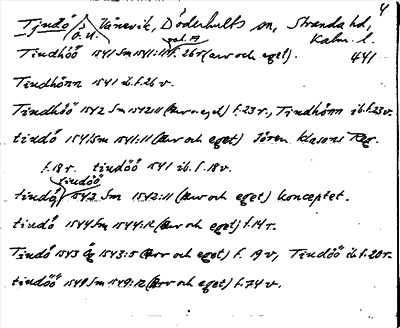 4
Tjndö / s. ö. u. \ Vånevik, Döderhults sn, Stranda hd,
Kalm. l.
Tindhöö 1541 Sm 1541:11 f. 26 r (Arv och eget). 441
Tindhönn 1541 ib. f. 26 v.
Tindhöö 1542 Sm 1542:11 (Arv o. eget) f. 23 r., Tindhönn ib. f. 23 v.
tindö 1541 Sm 1541:11 (Arv och eget) Jören Klasons Reg.
f. 18 r. tindöö 1541 ib. f. 18 v.
tindöö
tindö 1543 Sm 1542:11 (Arv och eget) konceptet.
tindö 1544 Sm 1544:12 (Arv och eget) f. 14 r.
Tindö 1543 Ög 1543:5 (Arv och eget) f. 19 v, Tindöö ib. f. 20 r.
tindöö 1549 Sm 1549:12 (Arv och eget) f. 74 v.